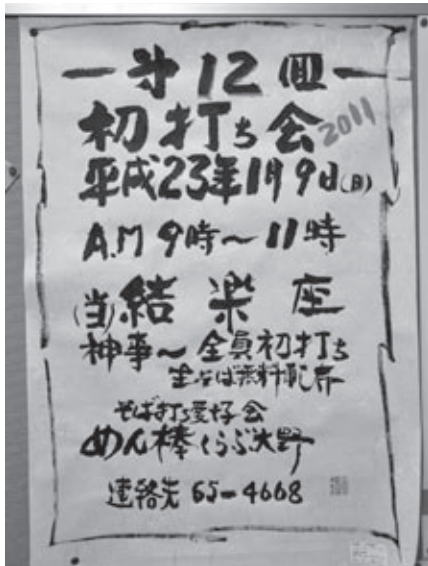 一第12回一
初打ち会 2011
平成23年1月9日(日)
A.M 9時～11時
(当)結楽座
神事～全員初打ち
生そば無料配布
そば打ち愛好会
めん棒くらぶ大野
連絡先 65-4668